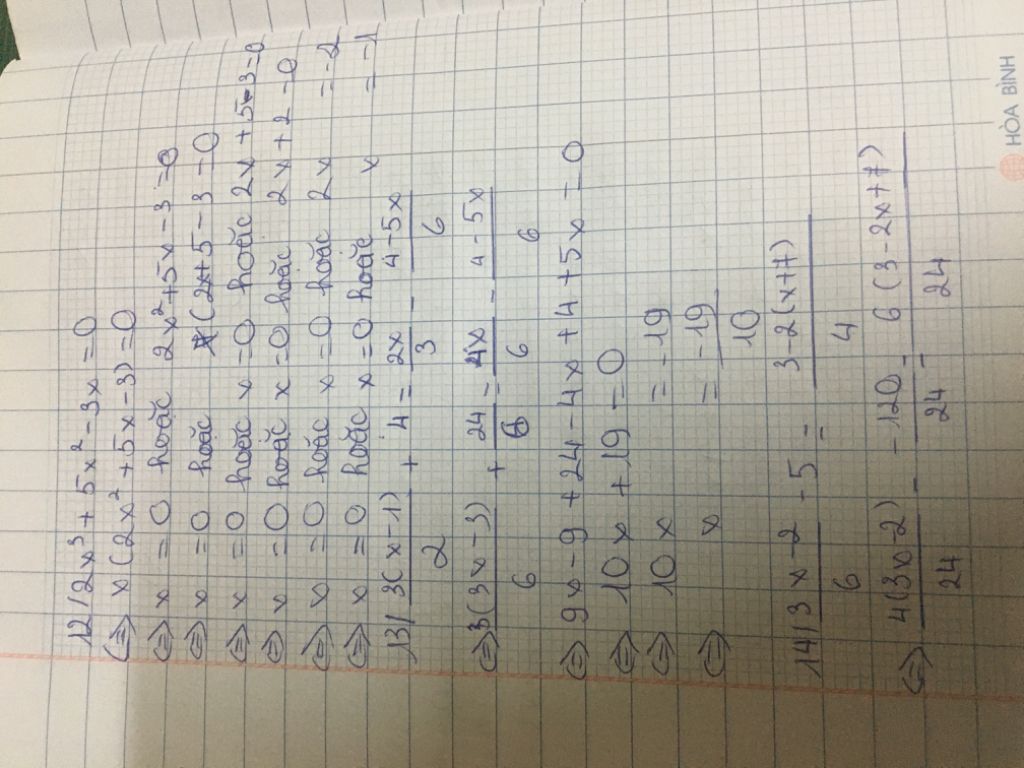 12/ 2x³ + 5x² - 3x = 0
⇔ x (2x² + 5x - 3) = 0
⇔ x = 0 hoặc 2x² + 5x - 3 = 0
⇔ x = 0 hoặc (2x+5 - 3 = 0
⇔ x = 0 hoặc x = 0 hoặc 2x + 5 - 3 = 0
⇔ x = 0 hoặc x = 0 hoặc 2x + 2 = 0
⇔ x = 0 hoặc x = 0 hoặc 2x = -2
⇔ x = 0 hoặc x = 0 hoặc x = -1
13/ 3(x-1)/2 + 4 = 2x/3 - 4-5x/6
⇔ 3(3x-3)/6 + 24/6 = 4x/6 - 4-5x/6
⇔ 9x - 9 + 24 - 4x + 4 + 5x = 0
⇔ 10x + 19 = 0
⇔ 10x = -19
⇔ x = -19/10
14/ 3x-2/6 - 5 = 3-2(x+7)/4
⇔ 4(3x-2)/24 - -120/24 = 6(3-2x+7)/24
HÒA BÌNH